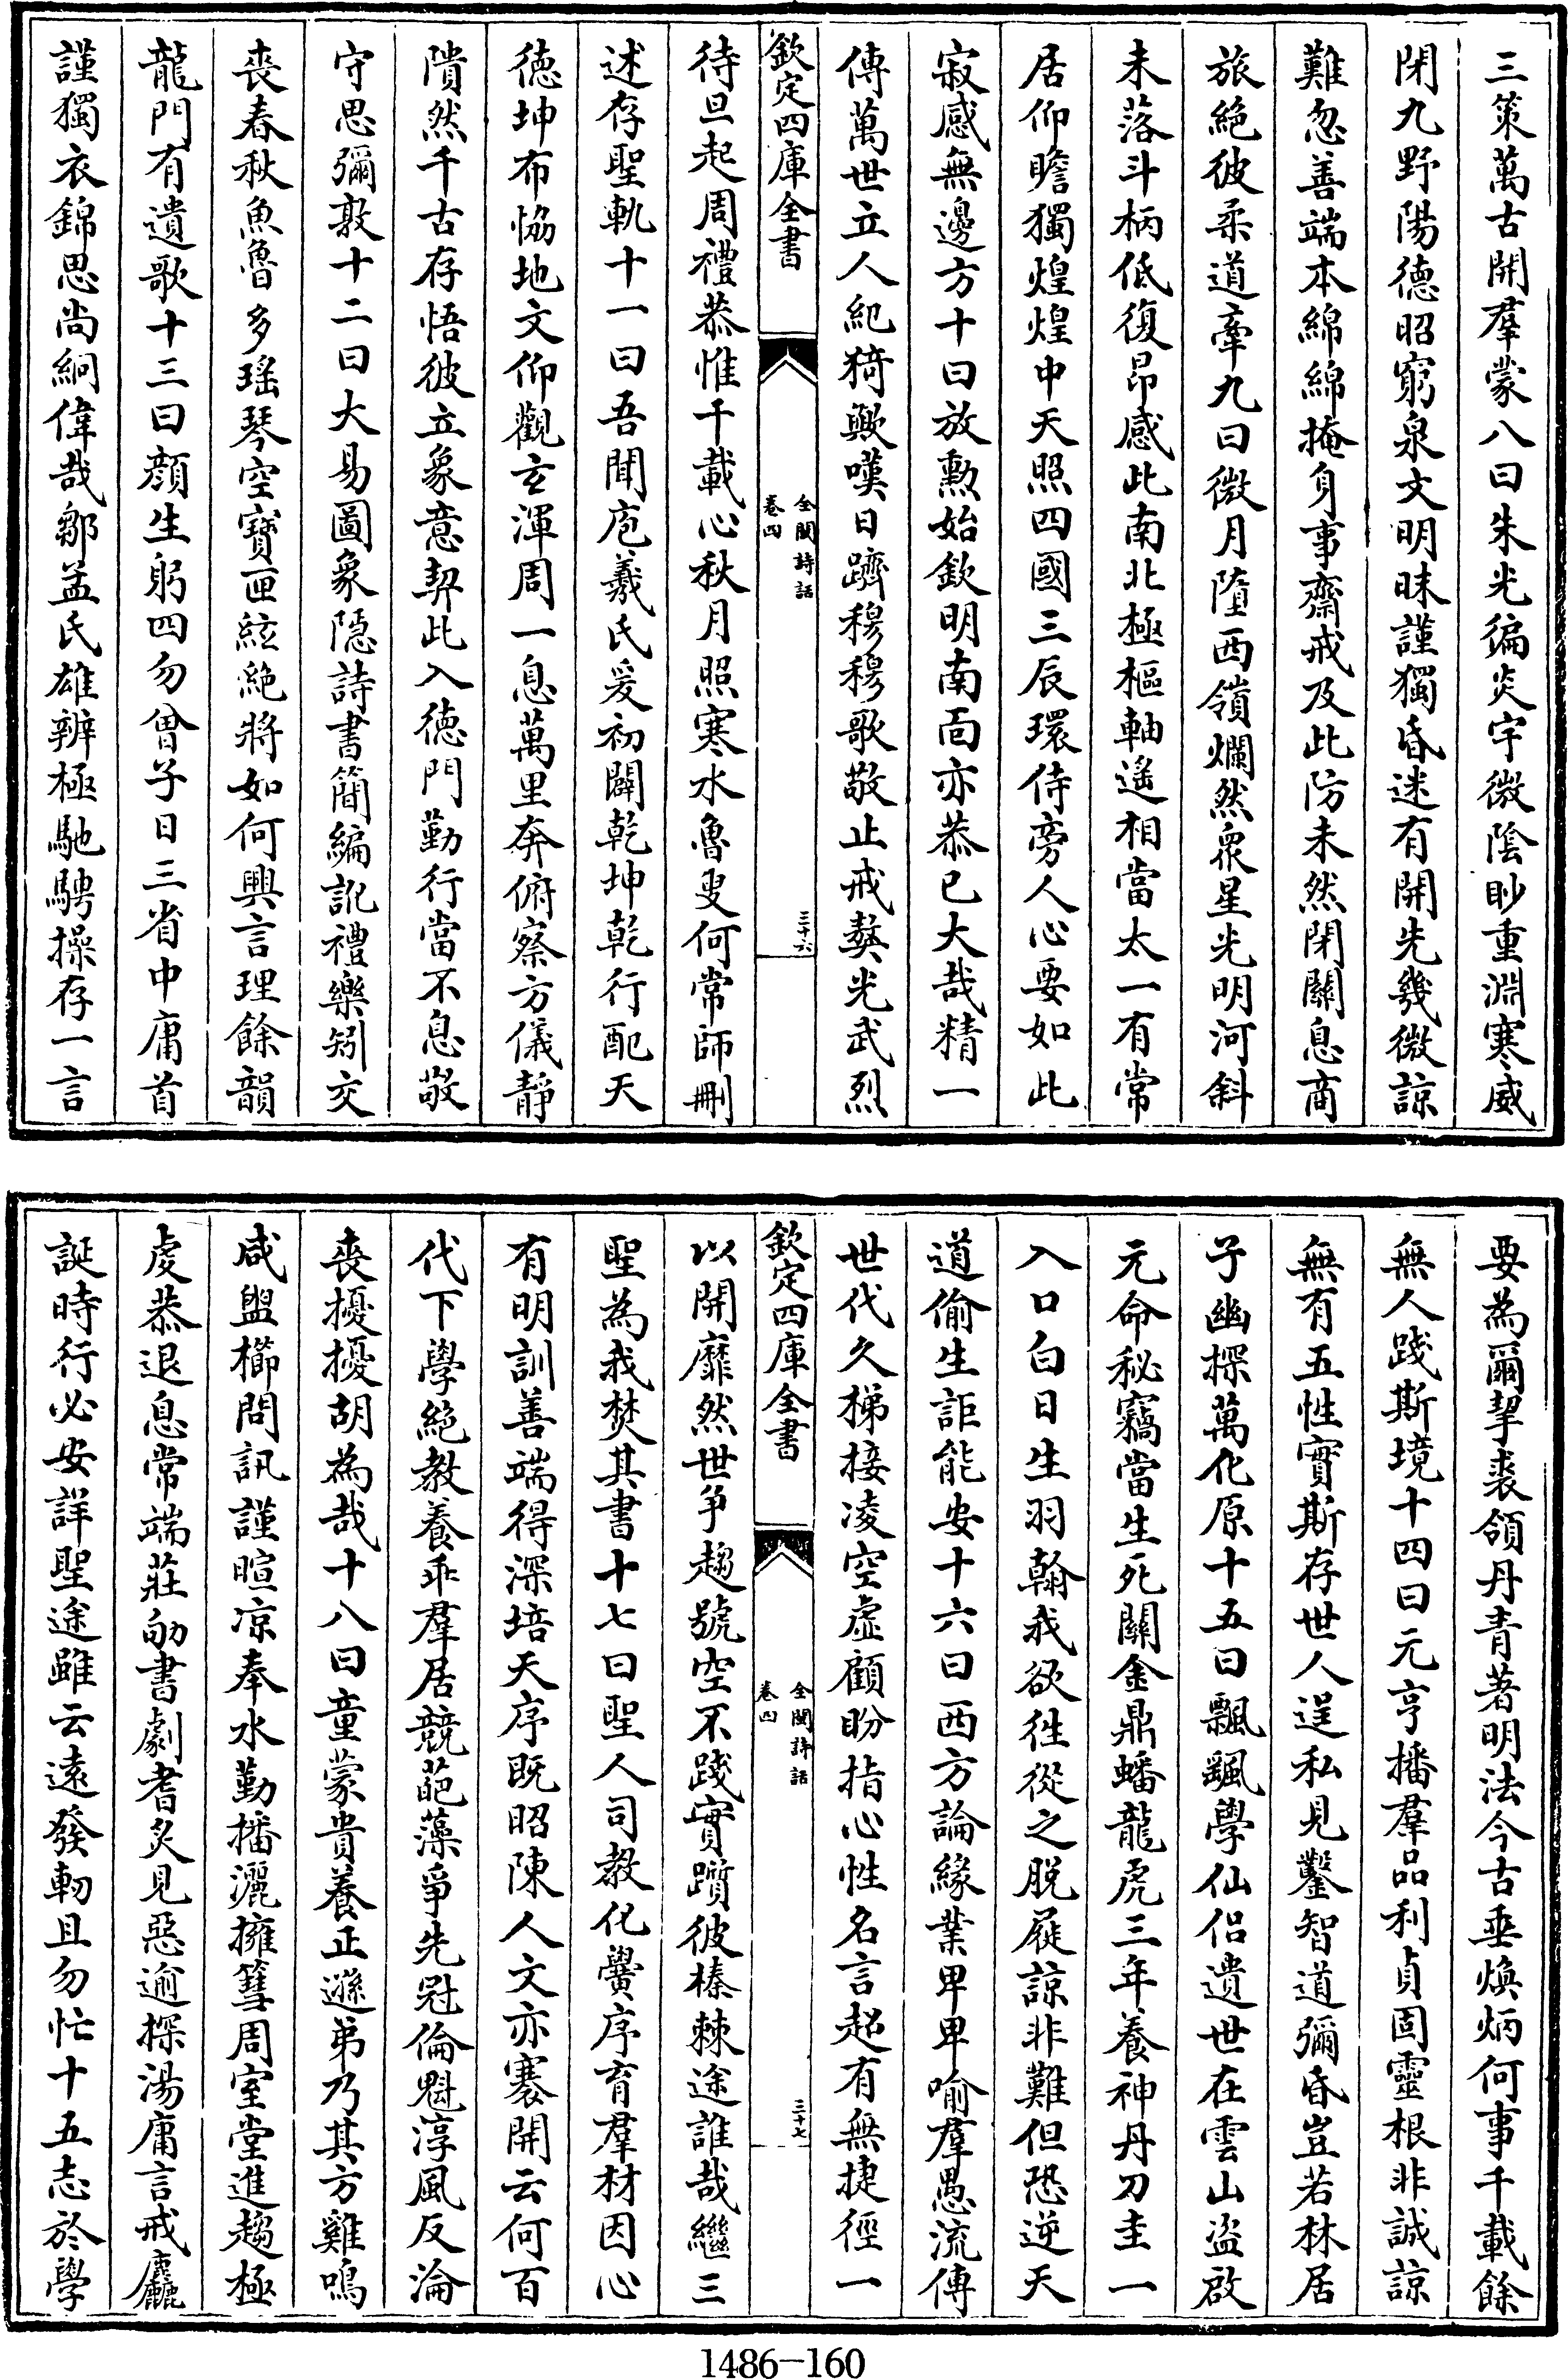 三策萬古開羣蒙八曰朱光徧炎宇微陰眇重淵寒威
閉九野陽德昭窮泉文明昧謹獨昏迷有開先幾微諒
難忽善端本綿綿掩身事齋戒及此防未然閉關息商
旅絕彼柔道牽九曰微月墮西嶺爛然衆星光明河斜
未落斗柄低復昂感此南北極樞軸遙相當太一有常
居仰瞻獨煌煌中天照四國三辰環侍旁人心要如此
寂感無邊方十曰放勲始欽明南面亦恭已大哉精一
傳萬世立人紀猗歟嘆日躋穆穆歌敬止戒獒光武烈
欽定四庫全書
全閩詩話
卷四
三十六
待旦起周禮恭惟千載心秋月照寒水魯叟何常師刪
述存聖軌十一曰吾聞庖羲氏爰初闢乾坤乾行配天
德坤布恊地文仰觀玄渾周一息萬里奔俯察方儀靜
隤然千古存悟彼立象意契此入德門勤行當不息敬
守思彌敦十二曰大易圖象隱詩書簡編訛禮樂矧交
喪春秋魚魯多瑶琴空寶匣絃絶將如何興言理餘韻
龍門有遺歌十三曰顔生躬四勿曾子日三省中庸首
謹獨衣錦思尚絅偉哉鄒孟氏雄辨極馳騁操存一言
要為爾挈裘領丹青著明法今古垂煥炳何事千載餘
無人踐斯境十四曰元亨播羣品利貞固靈根非誠諒
無有五性實斯存世人逞私見鑿智道彌昏豈若林居
子幽探萬化原十五曰飄颻學仙侣遺世在雲山盗啟
元命秘竊當生死關金鼎蟠龍虎三年養神丹刀圭一
入口白日生羽翰我欲徃從之脱屣諒非難但恐逆天
道偷生詎能安十六曰西方論緣業卑卑喻羣愚流傳
世代久梯接凌空虚顧盼指心性名言超有無捷徑一
欽定四庫全書
全閩詩話
卷四
三十七
以開靡然世爭趨號空不踐實躓彼榛棘途誰哉繼三
聖為我焚其書十七曰聖人司教化黌序育羣材因心
有明訓善端得深培天序既昭陳人文亦褰開云何百
代下學絕教養乖羣居競葩藻爭先冠倫魁淳風反淪
喪擾擾胡為哉十八曰童蒙貴養正遜弟乃其方雞鳴
咸盥櫛問訊謹暄凉奉水勤播灑擁篲周室堂進趨極
虔恭退息常端莊劬書劇耆炙見惡逾探湯庸言戒麤
誕時行必安詳聖途雖云遠發軔且勿忙十五志於學
1486-160